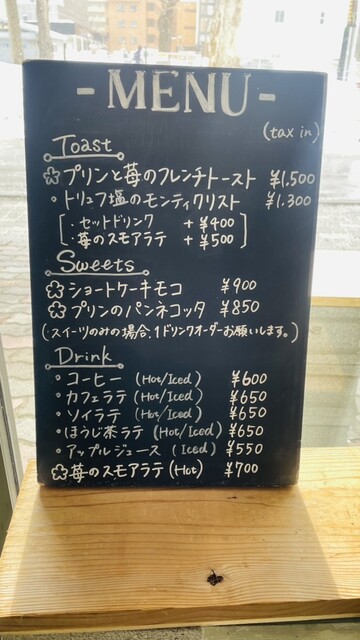 -MENU-
(tax in)
Toast
プリンと苺のフレンチトースト ¥1,500
・トリュフ塩のモンティクリスト ¥1,300
[・セットドリンク +¥400
・苺のスモアラテ +¥500]
Sweets
ショートケーキモコ ¥900
プリンのパンネコッタ ¥850
(スイーツのみの場合、1ドリンクオーダーお願いします。)
Drink
・コーヒー (Hot/Iced) ¥600
・カフェラテ (Hot/Iced) ¥650
・ソイラテ (Hot/Iced) ¥650
・ほうじ茶ラテ (Hot/Iced) ¥650
・アップルジュース (Iced) ¥550
苺のスモアラテ (Hot) ¥700